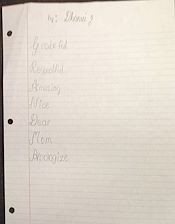 by:
Grateful
Respectful
Amazing
Nice
Dear
Mom
Apologize